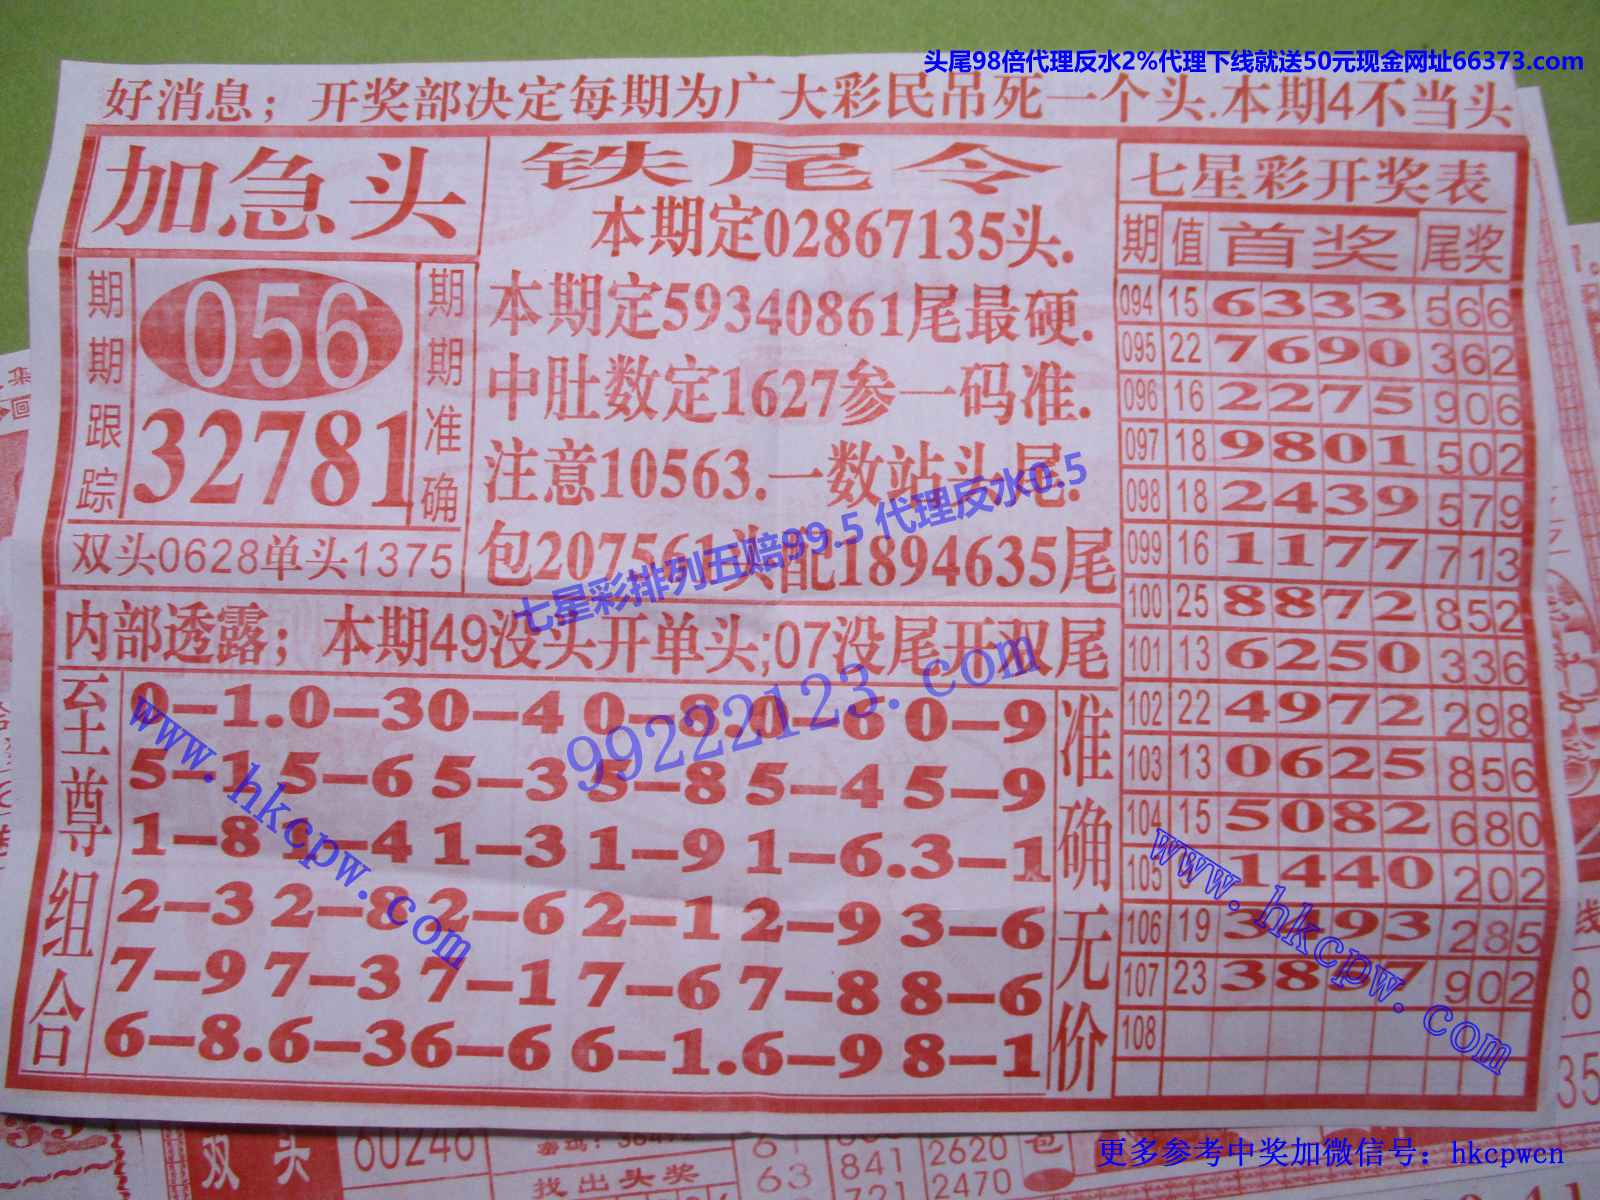 头尾98倍代理反水2%代理下线就送50元现金网址66373.com
好消息；开奖部决定每期为广大彩民吊死一个头.本期4不当头
加急头
期期跟踪
056
32781
期期准确
双头0628单头1375
铁尾令
本期定02867135头.
本期定59340861尾最硬.
中肚数定1627参一码准.
注意10563.一数站头尾.
包207561头配1894635尾
七星彩排列五赔99.5 代理反水0.5
内部透露；本期49没头开单头;07没尾开双尾
99222123.com
至尊组合
0-1.0-30-40-80-60-9
5-15-65-35-85-45-9
1-81-41-31-91-6.3-1
2-32-82-62-12-93-6
7-97-37-17-67-88-6
6-8.6-36-66-1.6-98-1
准确无价
www.hkcpw.com
七星彩开奖表
期 值 首奖 尾奖
094 15 6333 566
095 22 7690 362
096 16 2275 906
097 18 9801 502
098 18 2439 579
099 16 1177 713
100 25 8872 852
101 13 6250 336
102 22 4972 298
103 13 0625 856
104 15 5082 680
105 9 1440 202
106 19 3493 285
107 23 3857 902
108
www.hkcpw.com
双头 60248
找出头奖
63 841 2620
721 2470
包
35
更多参考中奖加微信号：hkcpwcn